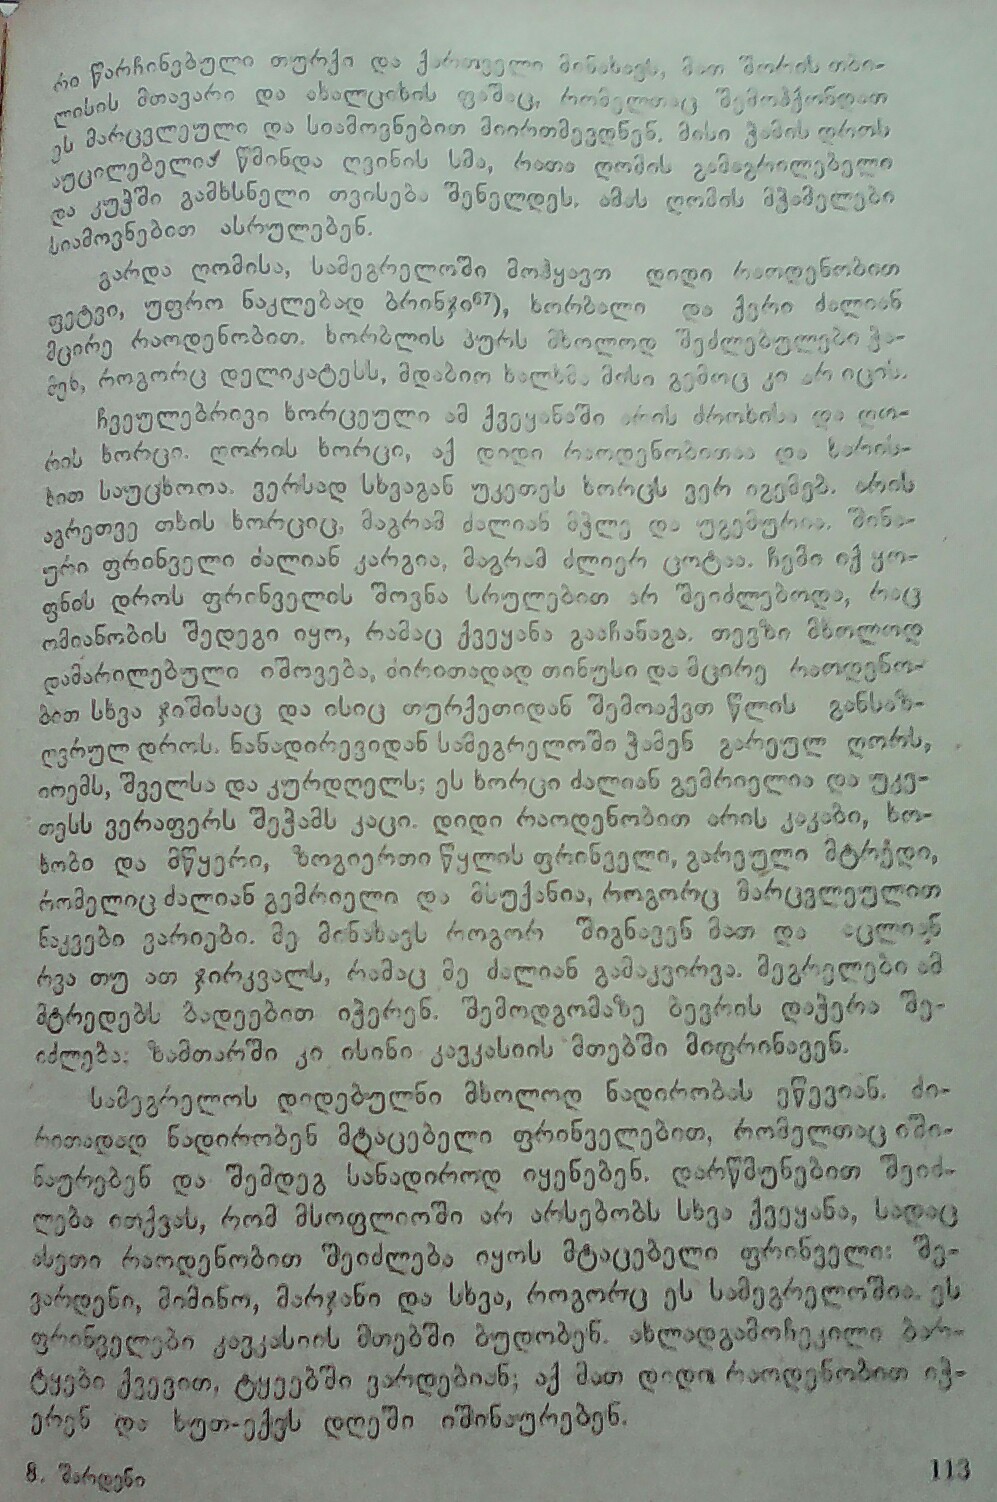 რი წარჩინებული თურქი და ქართველი მინახავს, მათ შორის თბი-
ლისის მთავარი და ახალციხის ფაშაც, რომელთაც შემოჰქონდათ
ეს მარცვლეული და სიამოვნებით მიირთმევდნენ. მისი ჭამის დროს
აუცილებელია წმინდა ღვინის სმა, რათა ღომის გამაგრილებელი
და კუჭში გამხსნელი თვისება შენელდეს. ამას ღომის მჭამელები
სიამოვნებით ასრულებენ.
გარდა ღომისა, სამეგრელოში მოჰყავთ დიდი რაოდენობით
ფეტვი, უფრო ნაკლებად ბრინჯი⁶⁷), ხორბალი და ქერი ძალიან
მცირე რაოდენობით. ხორბლის პურს მხოლოდ შეძლებულები ჭა-
მენ, როგორც დელიკატესს, მდაბიო ხალხმა მისი გემოც კი არ იცის.
ჩვეულებრივი ხორცეული ამ ქვეყანაში არის ძროხისა და ღო-
რის ხორცი. ღორის ხორცი, აქ დიდი რაოდენობითაა და ხარის-
ხით საუცხოოა. ვერსად სხვაგან უკეთეს ხორცს ვერ იგემებ. არის
აგრეთვე თხის ხორციც, მაგრამ ძალიან მჭლე და უგემურია. შინა-
ური ფრინველი ძალიან კარგია, მაგრამ ძლიერ ცოტაა. ჩემი იქ ყო-
ფნის დროს ფრინველის შოვნა სრულებით არ შეიძლებოდა, რაც
ომიანობის შედეგი იყო, რამაც ქვეყანა გააჩანაგა. თევზი მხოლოდ
დამარილებული იშოვება, ძირითადად თინუსი და მცირე რაოდენო-
ბით სხვა ჯიშისაც და ისიც თურქეთიდან შემოაქვთ წლის განსაზ-
ღვრულ დროს. ნანადირევიდან სამეგრელოში ჭამენ გარეულ ღორს,
ირემს, შველსა და კურდღელს; ეს ხორცი ძალიან გემრიელია და უკე-
თესს ვერაფერს შეჭამს კაცი. დიდი რაოდენობით არის კაკაბი, ხო-
ხობი და მწყერი, ზოგიერთი წყლის ფრინველი, გარეული მტრედი,
რომელიც ძალიან გემრიელი და მსუქანია, როგორც მარცვლეულით
ნაკვები ვარიები. მე მინახავს როგორ შიგნავენ მათ და აცლიან
რვა თუ ათ ჯირკვალს, რამაც მე ძალიან გამაკვირვა. მეგრელები ამ
მტრედებს ბადეებით იჭერენ. შემოდგომაზე ბევრის დაჭერა შე-
იძლება; ზამთარში კი ისინი კავკასიის მთებში მიფრინავენ.
სამეგრელოს დიდებულნი მხოლოდ ნადირობას ეწევიან. ძი-
რითადად ნადირობენ მტაცებელი ფრინველებით, რომელთაც იში-
ნაურებენ და შემდეგ სანადიროდ იყენებენ. დარწმუნებით შეიძ-
ლება ითქვას, რომ მსოფლიოში არ არსებობს სხვა ქვეყანა, სადაც
ასეთი რაოდენობით შეიძლება იყოს მტაცებელი ფრინველი: შე-
ვარდენი, მიმინო, მარჯანი და სხვა, როგორც ეს სამეგრელოშია. ეს
ფრინველები კავკასიის მთებში ბუდობენ. ახლადგამოჩეკილი ბარ-
ტყები ქვევით, ტყეებში ვარდებიან; აქ მათ დიდი რაოდენობით იჭ-
ერენ და ხუთ-ექვს დღეში იშინაურებენ.
8. შარდენი
113